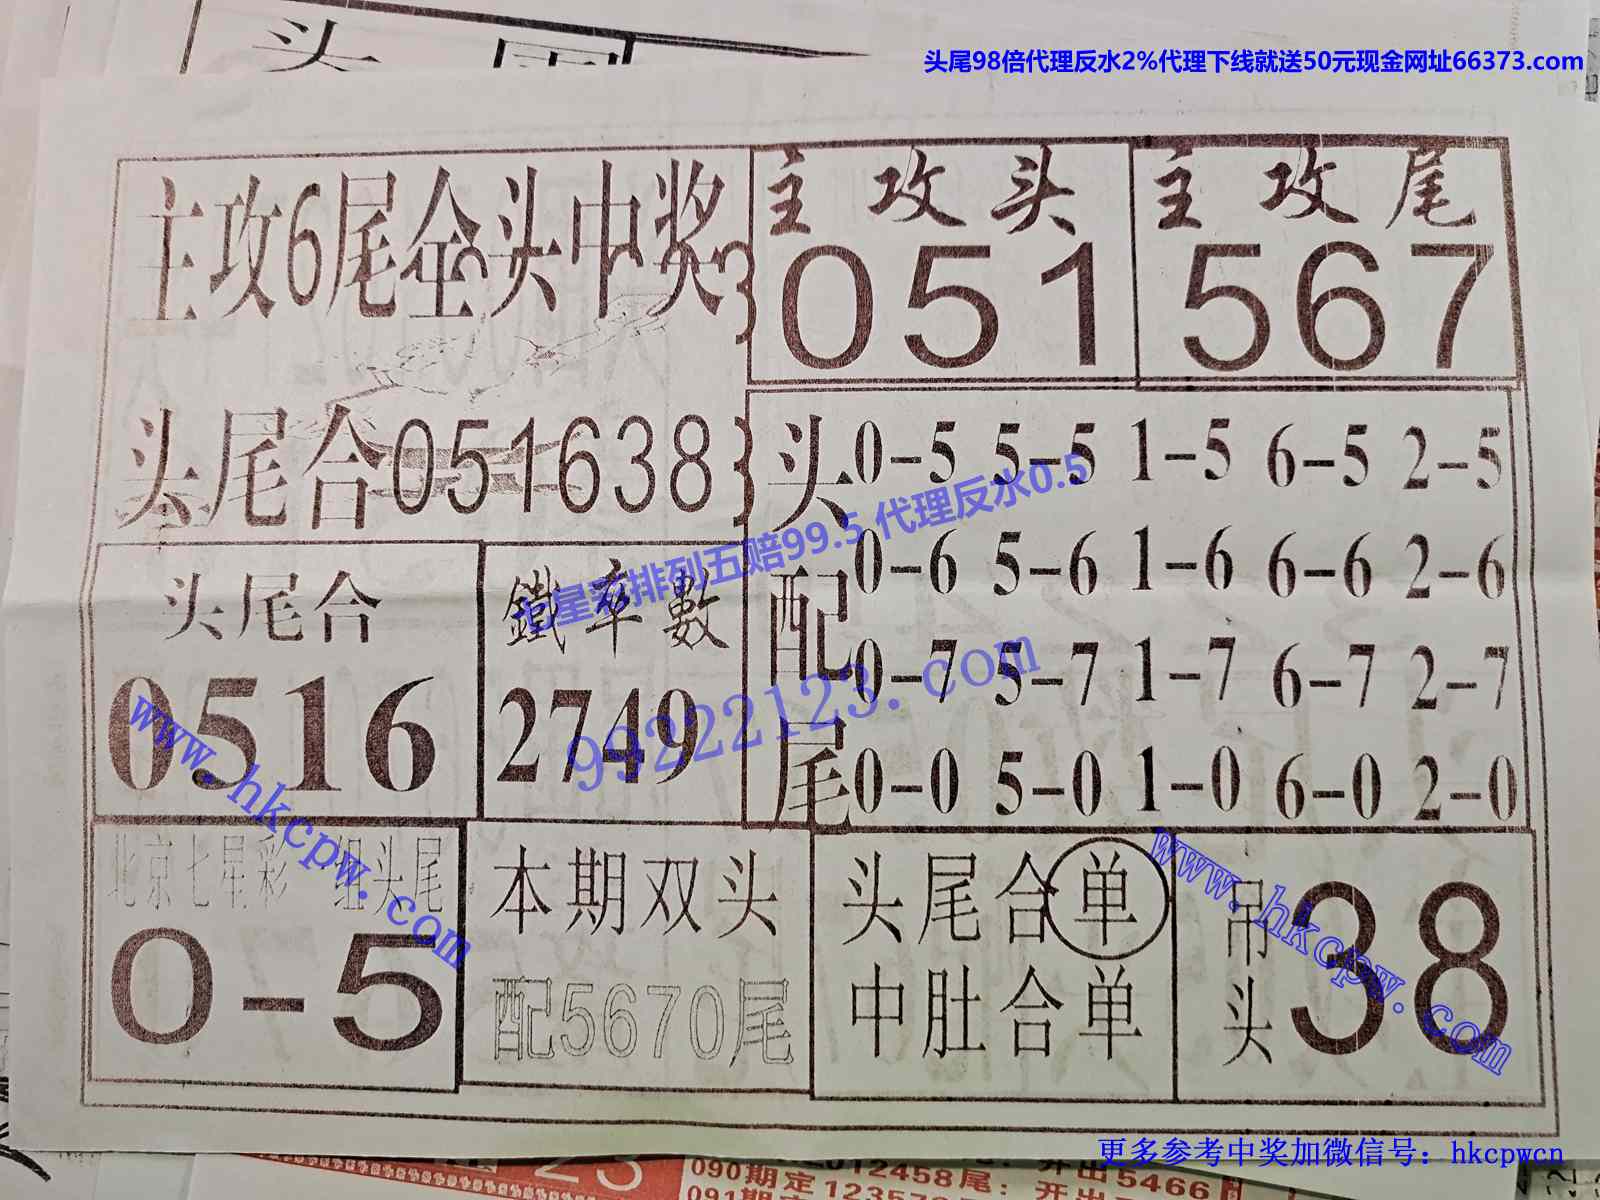 头尾98倍代理反水2%代理下线就送50元现金网址66373.com
主攻6尾全头中奖
主攻头
051
主攻尾
567
头尾合051638
头配尾
0-5 5-5 1-5 6-5 2-5
0-6 5-6 1-6 6-6 2-6
0-7 5-7 1-7 6-7 2-7
0-0 5-0 1-0 6-0 2-0
头尾合
0516
鐵率數
2749
排列五赔99.5 代理反水0.5
99222123.com
www.hkcpw.com
北京七星彩 组头尾
0-5
本期双头
配5670尾
头尾合单
中肚合单
吊头
38
www.hkcpw.com
更多参考中奖加微信号：hkcpwcn
090期定
012458尾：开出5466